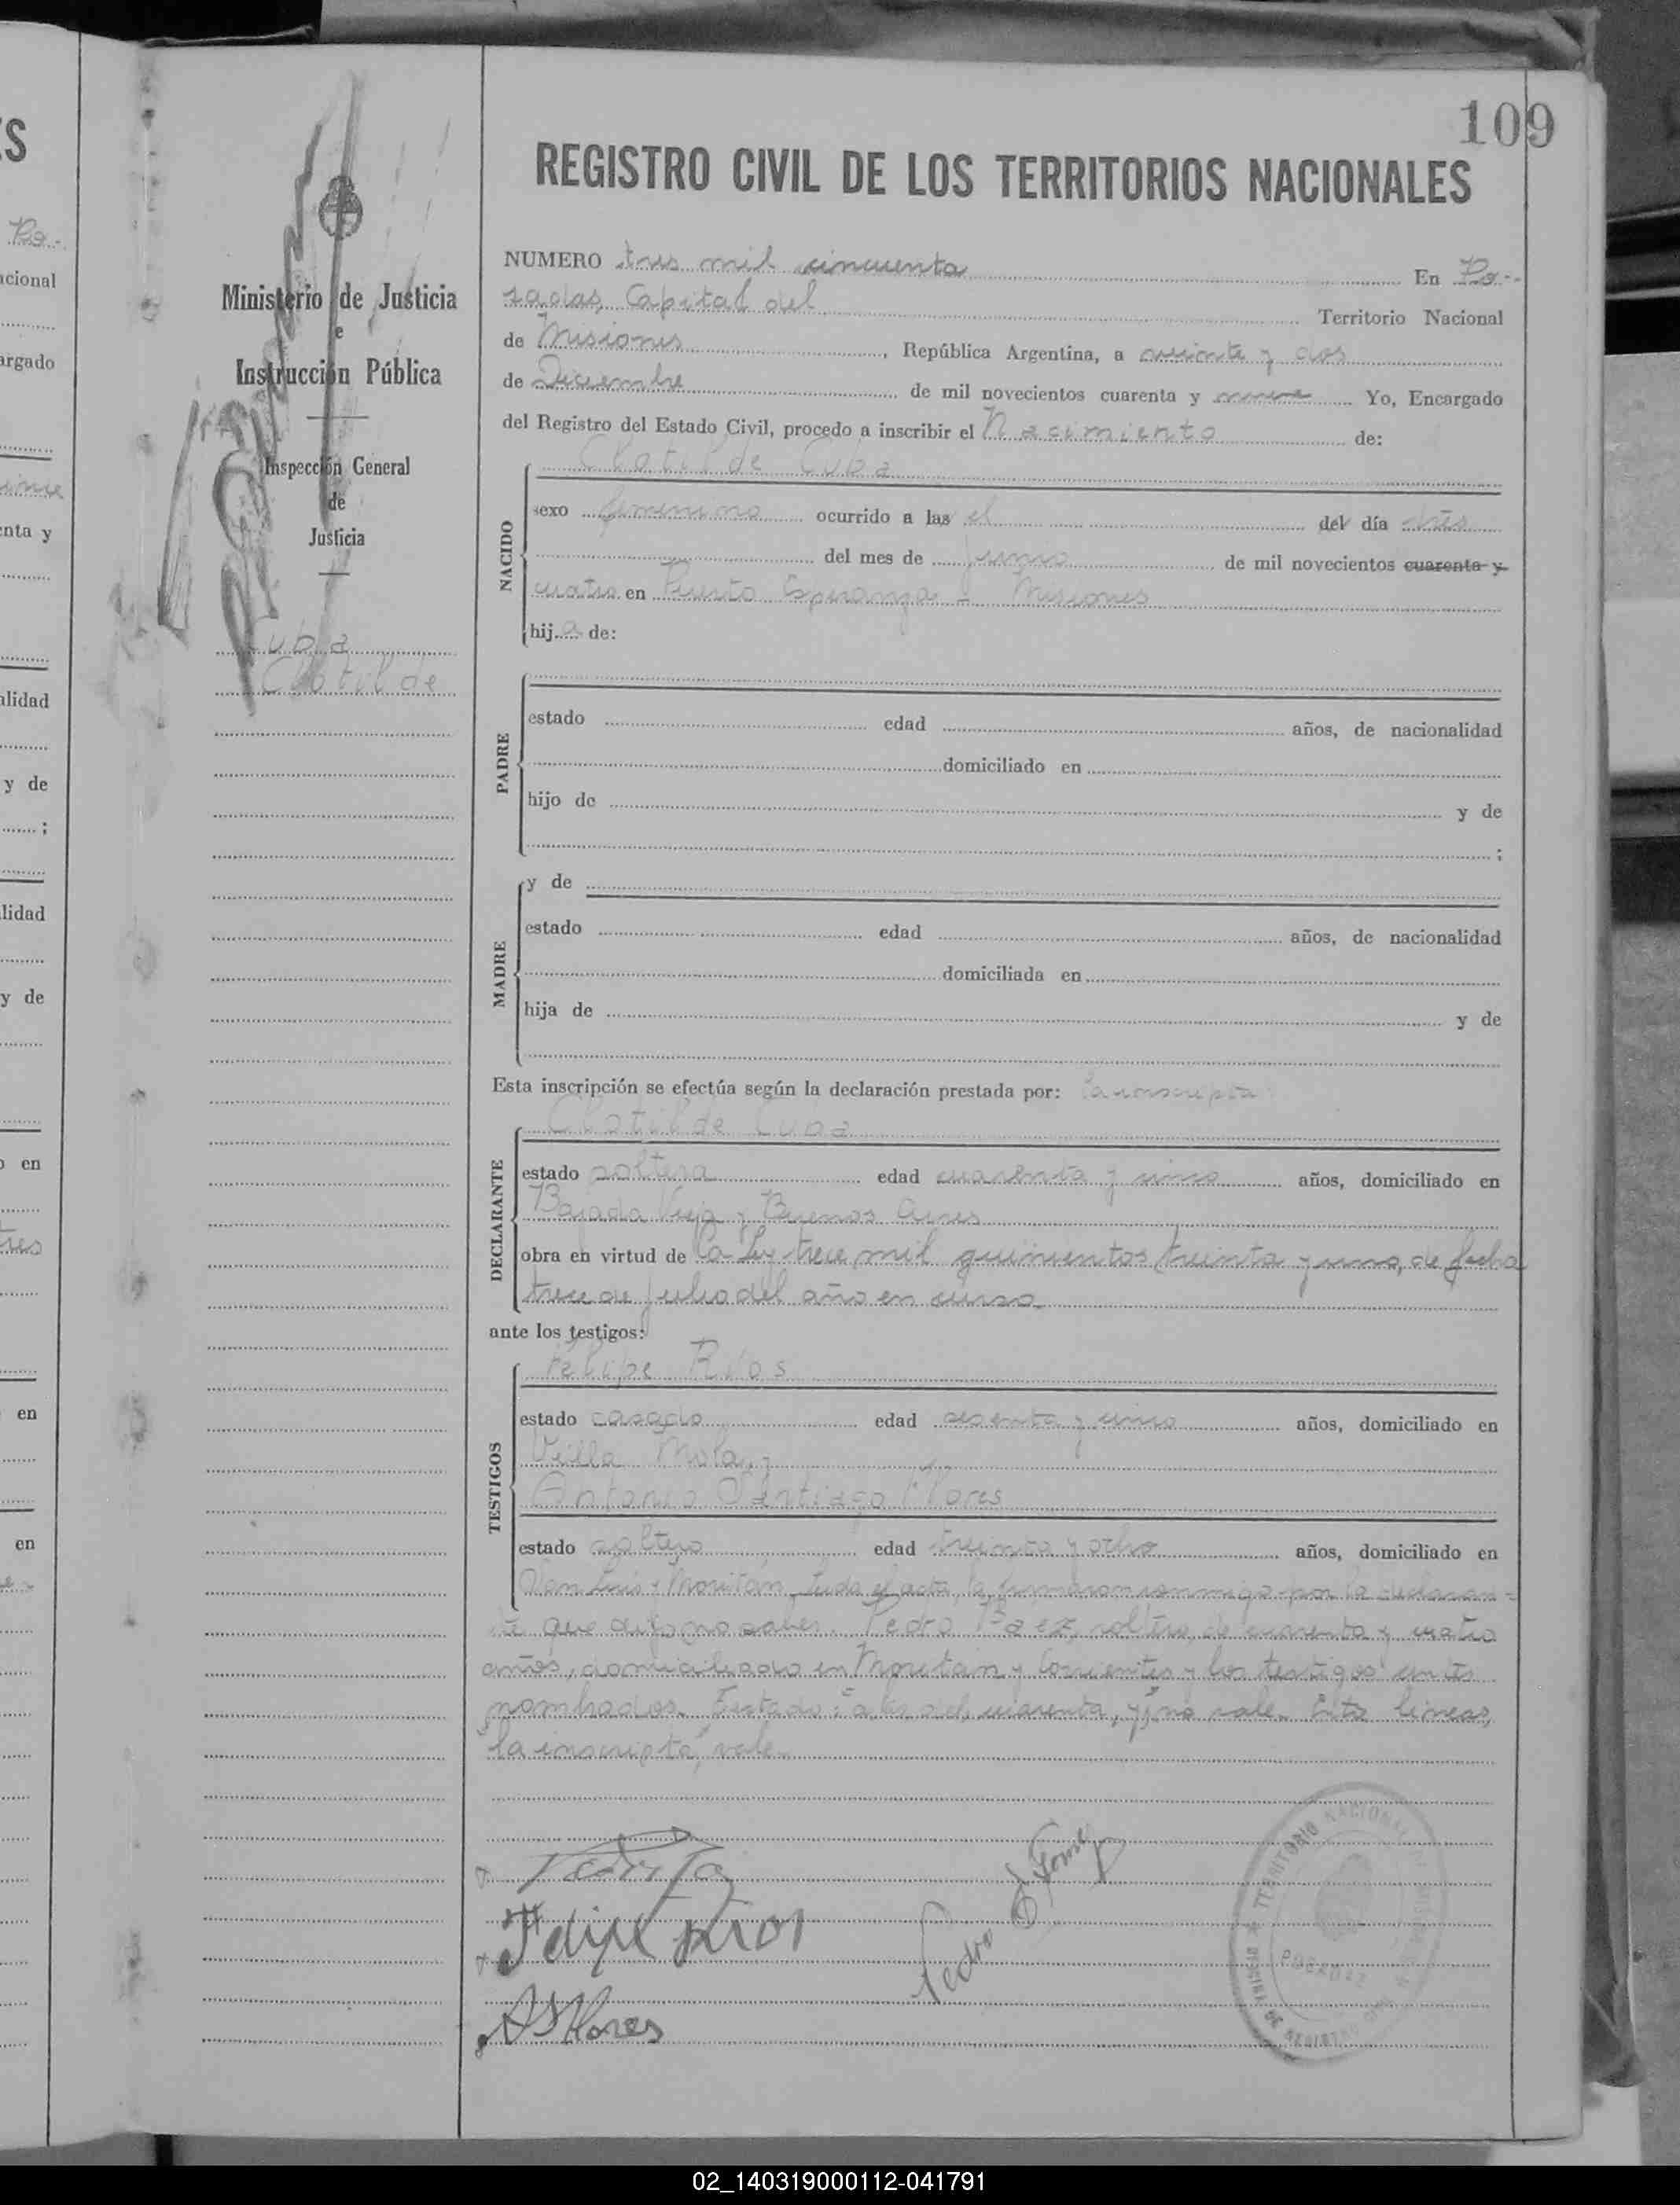 109
REGISTRO CIVIL DE LOS TERRITORIOS NACIONALES
NUMERO tres mil cincuenta En Po-
sadas, Capital del Territorio Nacional
de Misiones, República Argentina, a veinte y dos
de Diciembre de mil novecientos cuarenta y nueve Yo, Encargado
del Registro del Estado Civil, procedo a inscribir el Nacimiento de:
Clotilde Cuba
NACIDO
sexo femenino ocurrido a las el del día tres
del mes de Junio de mil novecientos cuarenta y
cuatro en Puerto Esperanza - Misiones
hija de:
PADRE
estado edad años, de nacionalidad
domiciliado en
hijo de y de
;
MADRE
y de
estado edad años, de nacionalidad
domiciliada en
hija de y de
Esta inscripción se efectúa según la declaración prestada por: la inscripta
Clotilde Cuba
DECLARANTE
estado soltera edad cuarenta y cinco años, domiciliado en
Bajada Vieja y Buenos Aires
obra en virtud de la Ley trece mil quinientos treinta y uno, de fecha
trece de Julio del año en curso
ante los testigos:
Felipe Rios
TESTIGOS
estado casado edad sesenta y cinco años, domiciliado en
Villa Mola,-
Antonio Santiago Flores
estado soltero edad treinta y ocho años, domiciliado en
San Luis y Moritán. Leida el acta, la firmaron conmigo por la declaran-
te que dijo no saber. Pedro Paez, soltero, de cuarenta y cuatro
años, domiciliado en Moritan y Corrientes y los testigos
nombrados. Testado: "a las del, cuarenta, y", no vale. Entre lineas,
"la inscripta", vale.
Felipe Rios
A S Flores
Pedro Gomez
TERRITORIO NACIONAL DE MISIONES
POSADAS
OFICINA DE REGISTRO CIVIL
Ministerio de Justicia
e
Instrucción Pública
Inspección General
de
Justicia
Cuba
Clotilde
02_140319000112-041791